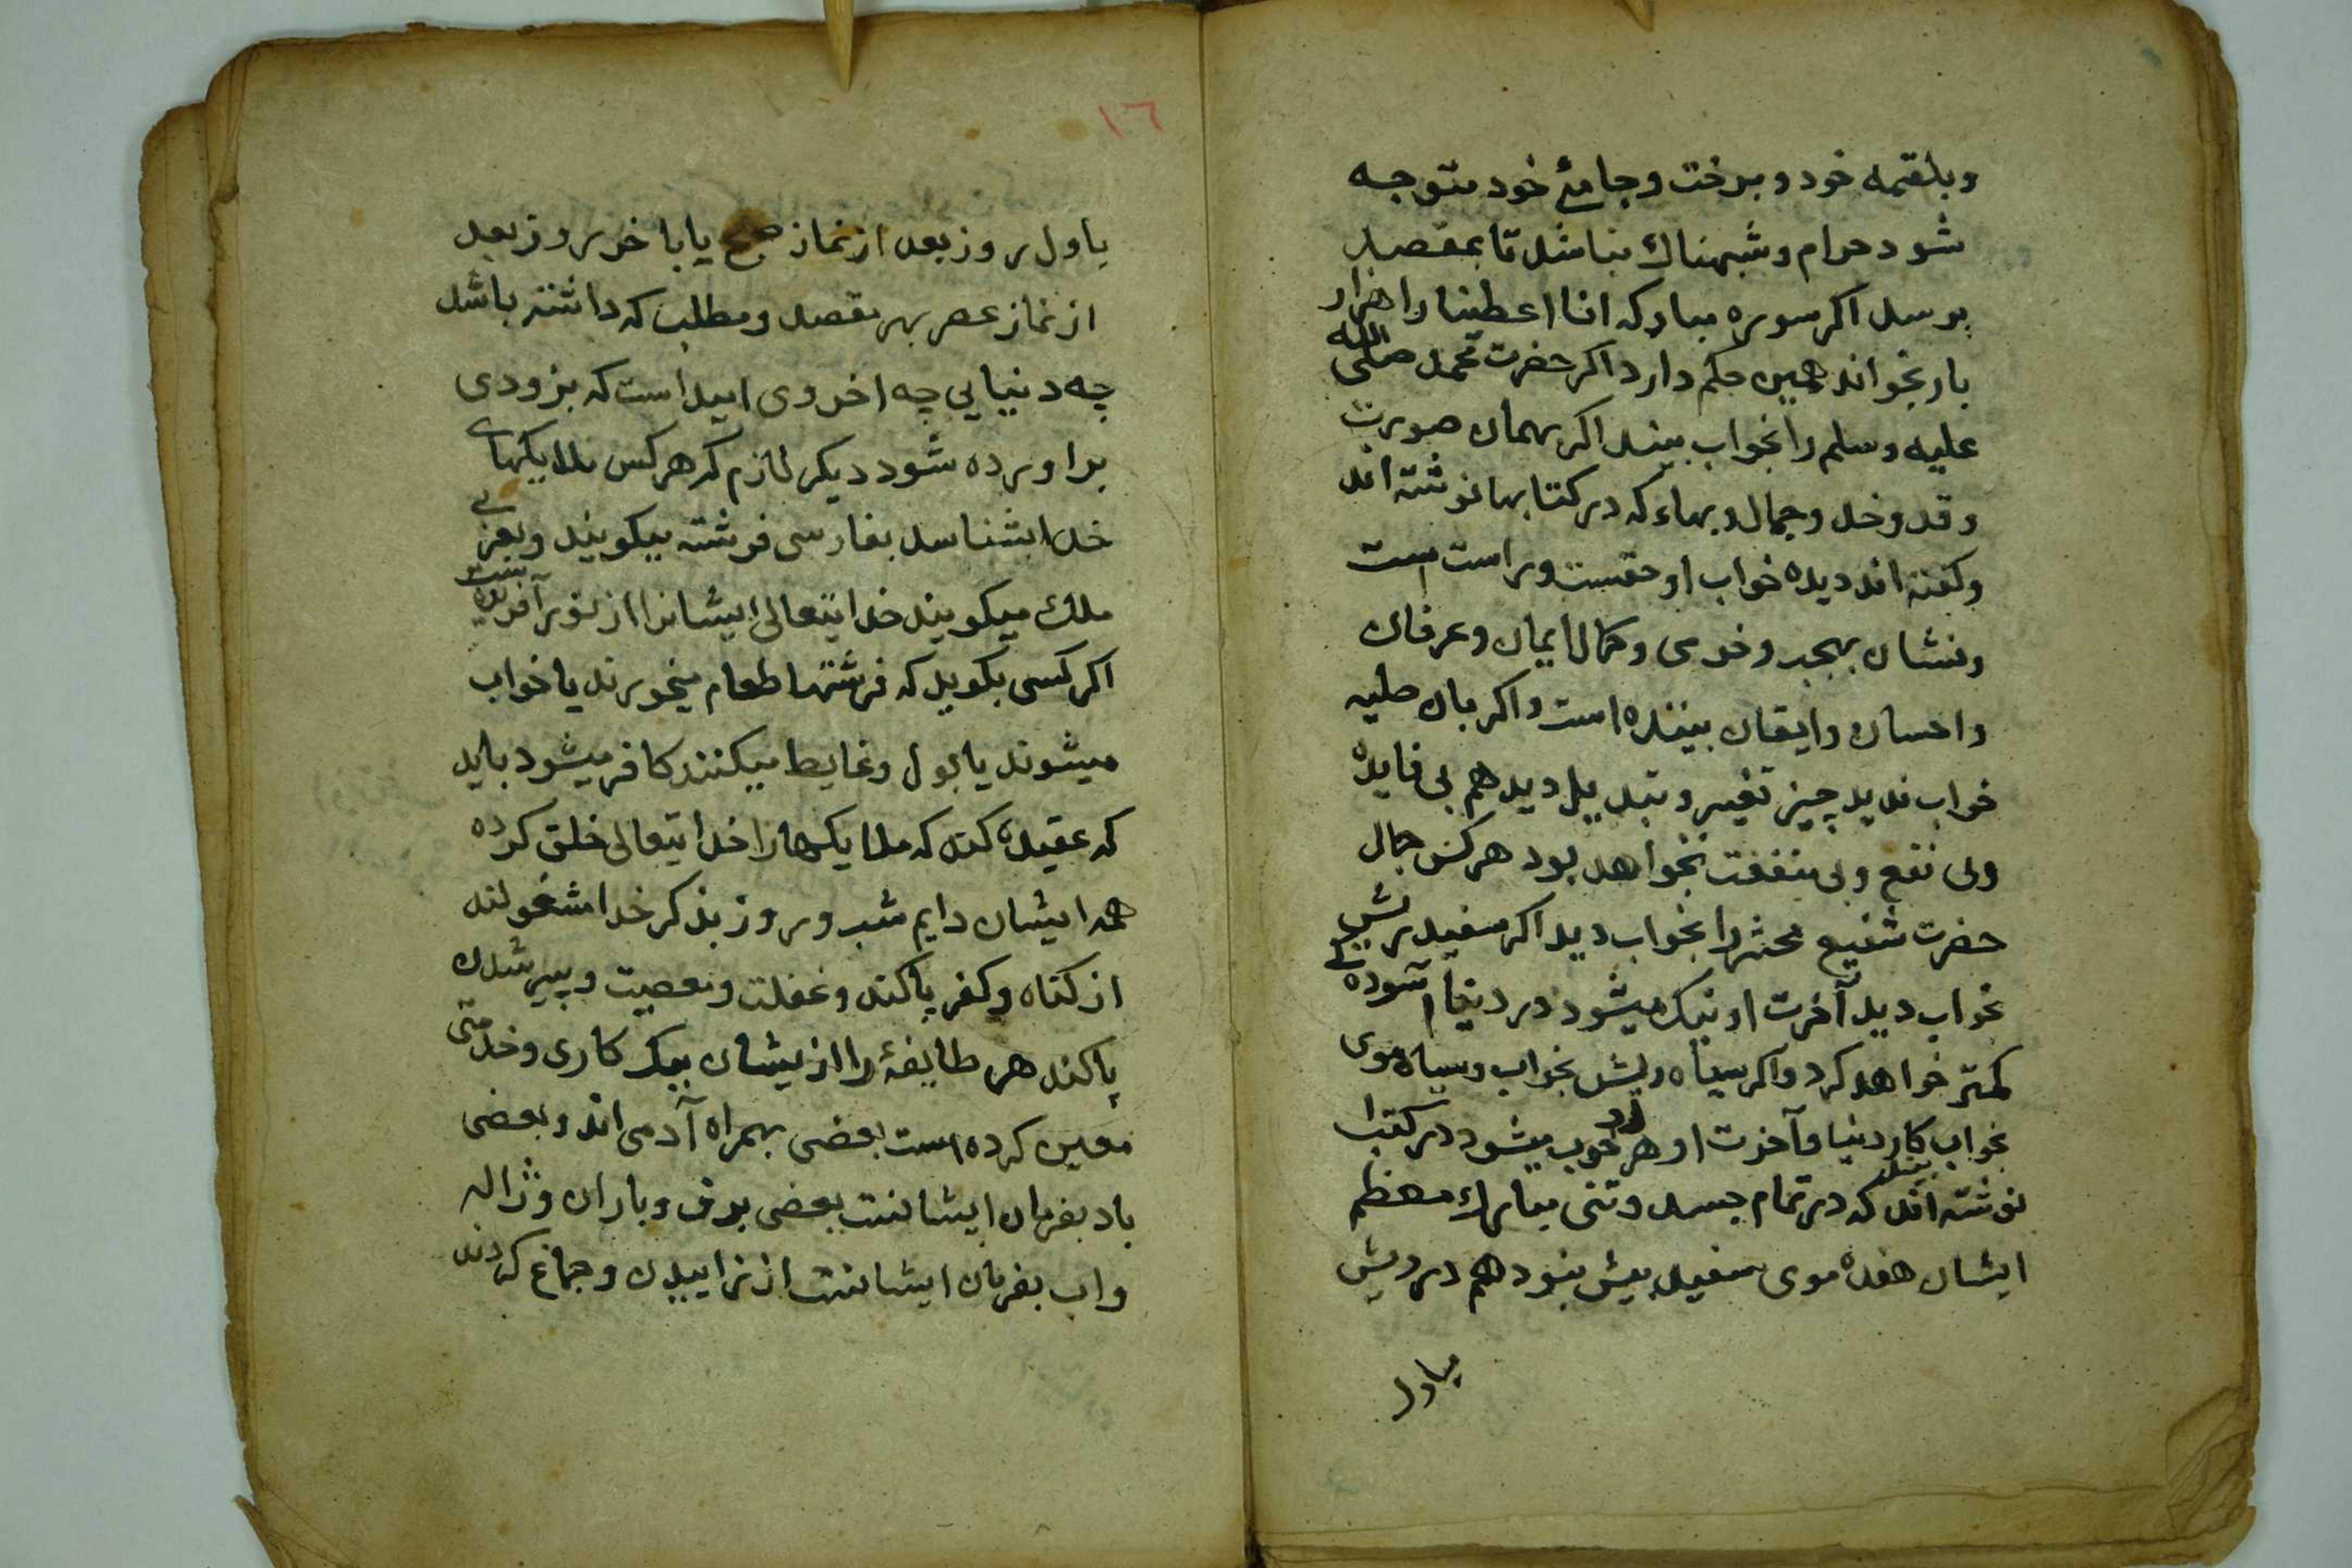 وبلقمه خود و برخت و جامۀ خود متوجه
شود حرام و شبهناك نباشد تا بمقصد
برسد اكر سوره مباركه انا اعطينا را هزار
بار بخواند همين حكم دارد اكر حضرت محمد صلى الله
عليه وسلم را بخواب بيند اكر بهمان صورت
و قد و خد و جمال و بهاء كه در كتابها نوشته اند
و كفته اند ديده خواب او حقست و راست است
و نشان بهجت و خرمى و كمال ايمان و عرفان
و احسان و ايقان بيننده است و اكر بان حليه
خواب نديد چيز تغير و تبديل ديد هم بى فايده
و بى نفع و بى منفعت نخواهد بود هر كس جمال
حضرت شفيع محشر را بخواب ديد اكر سفيد ريش
بخواب ديد آخرت او نيك ميشود در دنيا آسوده كى
كمتر خواهد كرد و اكر سياه ريش بخواب و سياه موى
بخواب بيند كار دنيا و آخرت او هر دو خوب ميشود در كتبا
نوشته اند كه در تمام جسد و تنى مبارك معظم
ايشان هفده موى سفيد بيش نبود هم در ريش
ياول
١٦
ياول روز بعد از نماز صبح يا باخر روز بعد
از نماز عصر بهر مقصد و مطلب كه داشته باشد
چه دنيايى چه اخروى اميد است كه بزودى
براورده شود ديكر لازم كه هر كس ملايكهاى
خدا بشناسد بفارسى فرشته ميكويند و بعربى
ملك ميكويند خدايتعالى ايشانرا از نور آفريده
اكر كسى بكويد كه فرشتها طعام ميخورند يا خواب
ميشوند يا بول و غايط ميكنند كافر ميشود بايد
كه عقيده كند كه ملايكها را خدايتعالى خلق كرده
همه ايشان دايم شب و روز بذكر خدا مشغولند
از كناه و كفر پاكند و غفلت و معصيت و پير شدن
پاكند هر طايفۀ را از ايشان بيك كارى و خدمتى
معين كرده است بعضى بهمراه آدمى اند و بعضى
باد بفرمان ايشانست بعضى برف و باران و ژاله
و اب بفرمان ايشانست از زاييدن و جماع كردن